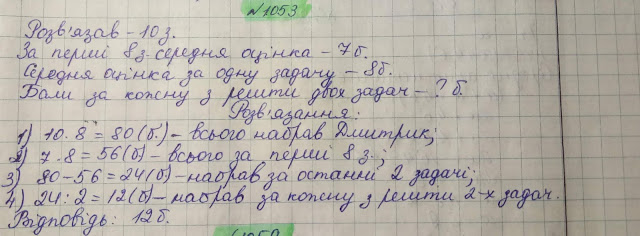 №1053
Розв'язав - 10 з.
За перші 8 з. середня оцінка - 7 б.
Середня оцінка за одну задачу - 8 б.
Бали за кожну з решти двох задач - ? б.
Розв'язання:
1) 10 · 8 = 80 (б.) - всього набрав Дмитрик;
2) 7 · 8 = 56 (б) - всього за перші 8 з.;
3) 80 - 56 = 24 (б) - набрав за останні 2 задачі;
4) 24 : 2 = 12 (б) - набрав за кожну з решти 2-х задач.
Відповідь: 12 б.